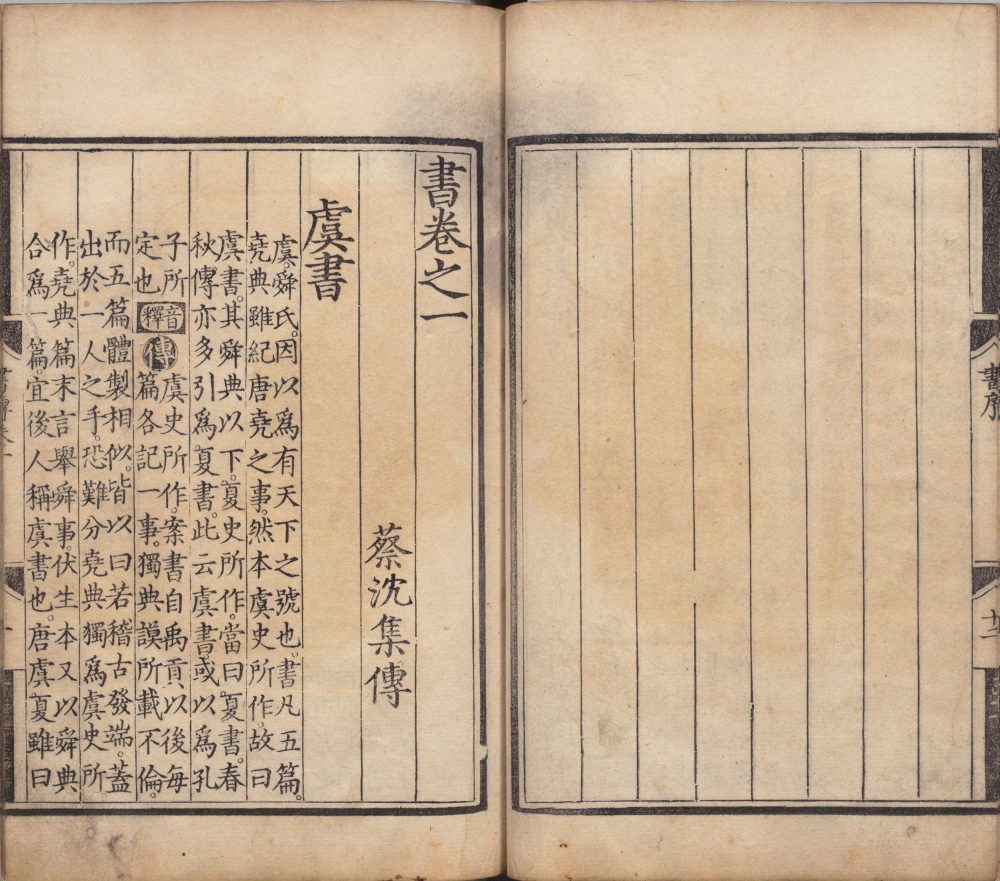 書序
十二
書卷之一
蔡沈集傳
虞書
虞。舜氏。因以爲有天下之號也。書凡五篇。
堯典雖紀唐堯之事。然本虞史所作。故曰
虞書。其舜典以下。夏史所作。當曰夏書。春
秋傳亦多引爲夏書。此云虞書。或以爲孔
子所
定也
音釋
傳
虞史所作。案書自禹貢以後每
篇各記一事。獨典謨所載不倫。
而五篇體製相似。皆以曰若稽古發端。蓋
出於一人之手。恐難分堯典獨爲虞史所
作。堯典篇末言舉舜事。伏生本又以舜典
合爲一篇。宜後人稱虞書也。唐虞夏雖曰